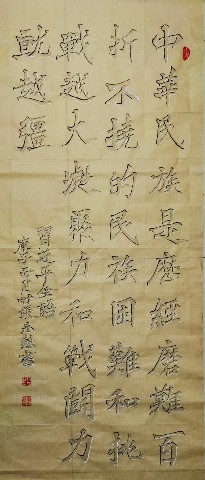 中華民族是歷經磨難百
折不撓的民族困難和挑
戰越大凝聚力和戰鬪力
就越彊
習近平金語
庚子